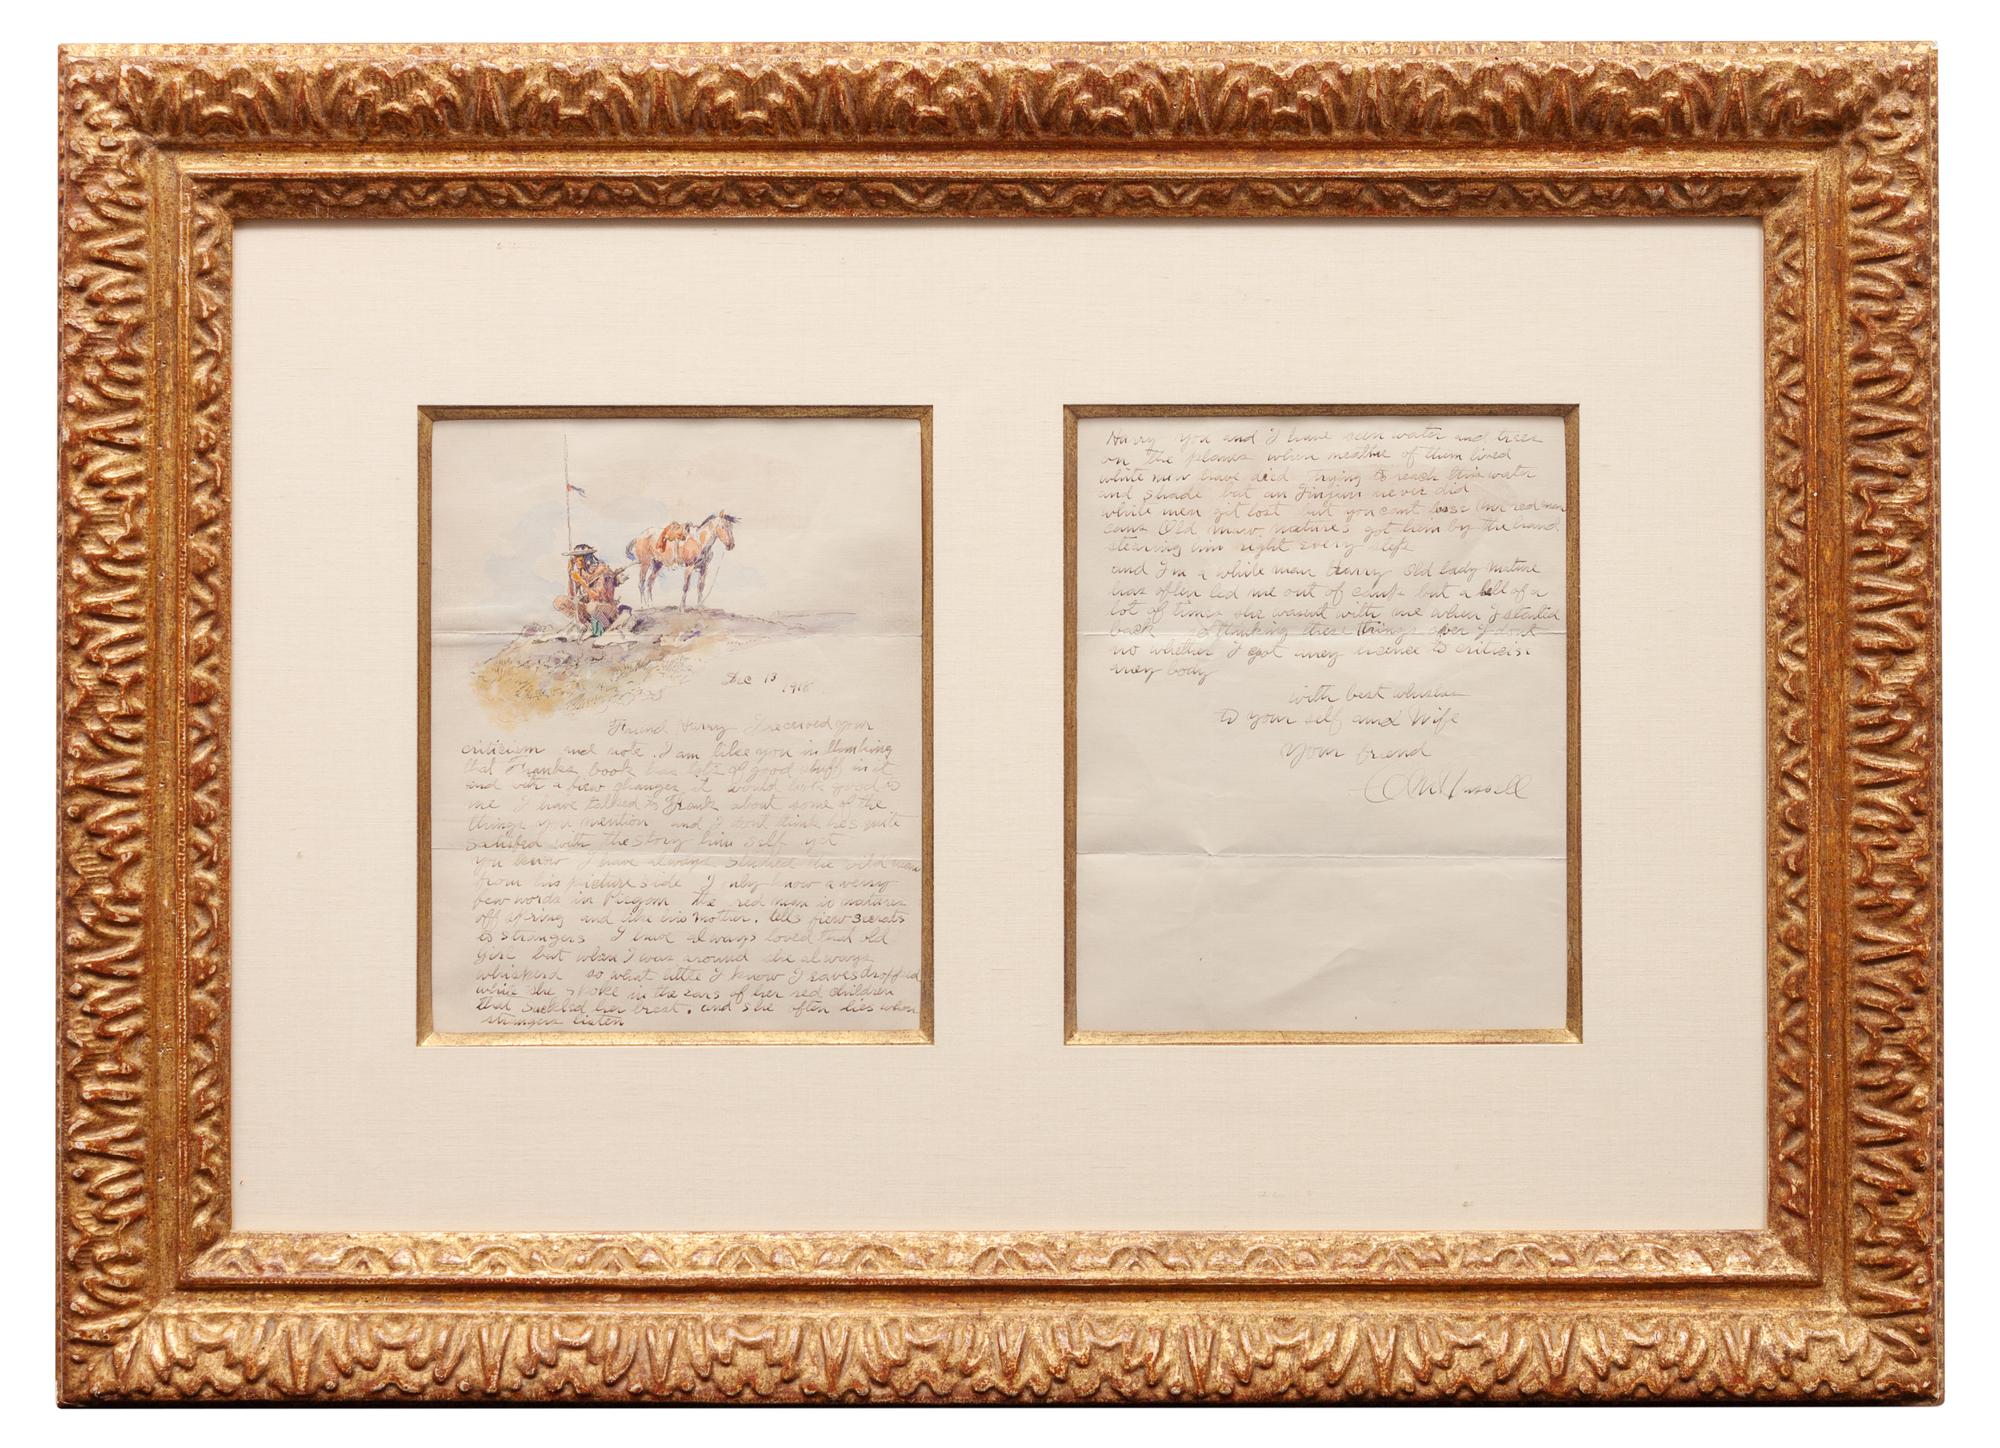 Dec 13
1918
Friend Harry I received your
criticism and note. I am like you in thinking
that Franks book has lots of good stuff in it
and with a fiew changes it would look good to
me I have talked to Frank about some of the
things you mention and I dont think hes quite
satisfied with the story him self yet
you know I have always studied the wild man
from his picture side I only know a verry
few words in Pigon the red man is natures
off spring and like his mother. tells fiew secrats
to strangers I have always loved that old
Girl but when I was around she always
whisperd so what little I know I eavesdropped
while she spoke in the ears of her red children
that suckled her brest. and she often lies when
strangers listen
Harry you and I have seen water and trees
on the planes when neathe of them lived
white men have died trying to reach this water
and shade but an Injun never did
white men get lost but you cant lose the red man
cause Old maw natures got him by the hand
stearing him right every step
and Im a white man Harry old lady nature
has often led me out of camp but a hell of a
lot of times she wasent with me when I started
back thinking these things over I dont
no whether I got aney licence to criticis
aney body
with best whishes
to your self and Wife
your friend
C M Russell